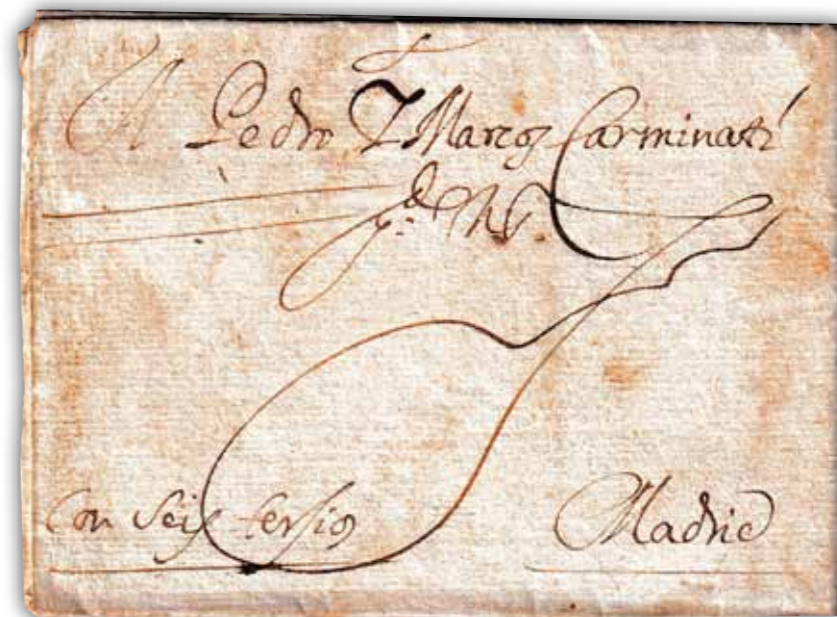 A Pedro Y Marcos Carminati
gde Ms.
Con Seis tersios
Madrid